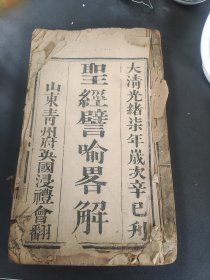 大清光緒柒年歲次辛巳刋
聖經譬喻畧解
山東青州府英國浸禮會翻